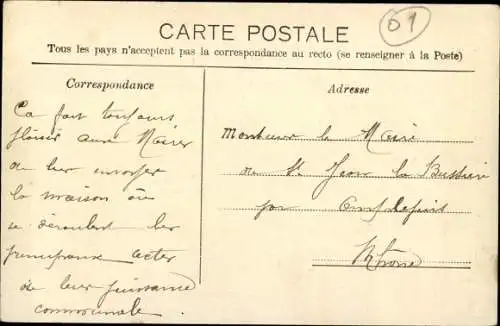 CARTE POSTALE
01
Tous les pays n'acceptent pas la correspondance au recto (se renseigner à la Poste)
Correspondance
Ca fait toujours
plaisir aux Maires
de leur envoyer
la maison où
se déroulent les
principaux actes
de leur puissance
communale.
Adresse
Monsieur le Maire
de St Jean la Bussière
par Amplepuis
Rhône